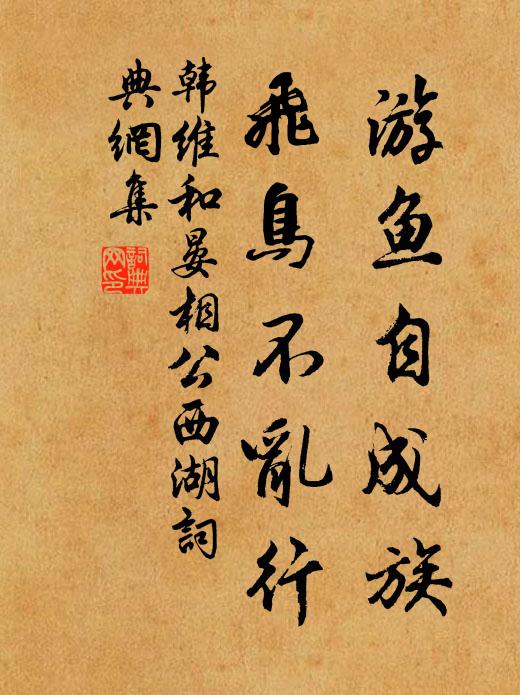 游鱼自成族
飛鳥不亂行
韩維和晏相公西湖詞
典網集
詞典网印